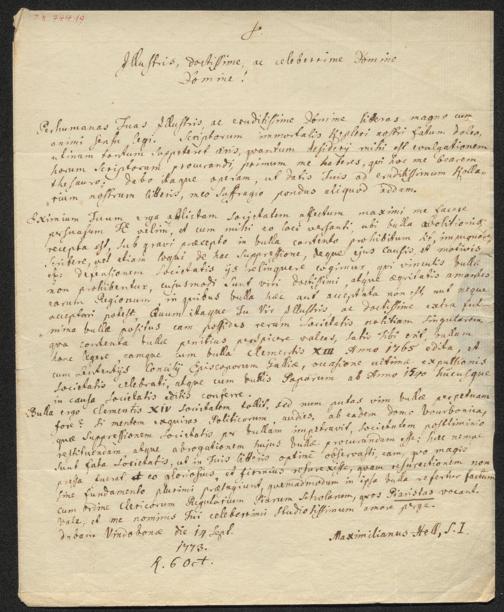 Illustris, doctissime, ac celeberrime Domine
Domine!
Perhumanas Tuas Illustris, ac eruditissime Domine litteras magno cum
animi sensu legi. Scriptorum immortalis Kepleri nostri fatum doleo,
utinam tantum suppeteret æris, quantum desiderij mihi est evulgationem
horum Scriptorum procurandi, primum me haberes, qui hoc me bearem
thesauro; dabo itaque operam, ut datis suis ad eruditissimum Kolla-
rium, nostrum litteris, meo suffragio pondus aliquod addam.
Eximium Tuum erga afflictam Societatem affectum maximi me facere
persuasum Te velim, et cum mihi eo loci versanti, ubi bulla abolitionis
recepta est, sub gravi præcepto in bulla contento prohibitum sit,
scribere, vel etiam loqui de hac Suppressione, deque ejus causis, et motivis
ejus defensionem Societatis ijs relinquere cogimur qui vinculis bullæ
non prohibentur, cujusmodi sunt viri doctissimi, atque æquitatis amantes
earum Regionum in quibus bulla hæc aut acceptata non est, aut neque
acceptari potest. Quum itaque Tu Vir Illustris, ac doctissime extra ful-
mina bullæ positus eam possideas rerum Societatis notitiam singularem
qua contenta bullæ penitius perspicere valeas, satis Tibi erit bullam
hanc legere, eamque cum bulla Clementis XIII Anno 1765 edita, et
cum sententijs Concilij Episcoporum Galliæ, occasione ultimæ expulsionis
Societatis celebrati, atque cum bullis Paparum ab Anno 1540 hucusque
in causa Societatis editis confere.
Bulla ergo Clementis XIV Societatem tollit, sed num autas vim bullæ perpetuam
fore? Si mentem exquiras Politicorum, audies, ab eadem domo Bourbonica,
quæ Suppressionem Societatis per bullam impetravit, societatem postliminio
restituendam, atque abrogationem hujus bullæ procurandam esse; hæc nempe
sunt fata Societatis, ut in suis litteris optime observasti, eam, quo magis
pressa fuerat eo gloriosius, et firmius resurrexisse, quam resurrectionem non
sine fundamento plurimi præsagiunt, quemadmodum in ipsa bulla refertur factum
cum ordine Clericorum Regularium Piarum Scholarum, quos Piaristas vocant.
Vale, et me nominis Tui celeberrimi Studiosissimum amare perge.
dabam Vindobonæ die 14 Sept.
1773.
R. 6 Oct.
Maximilianus Hell, S. I.